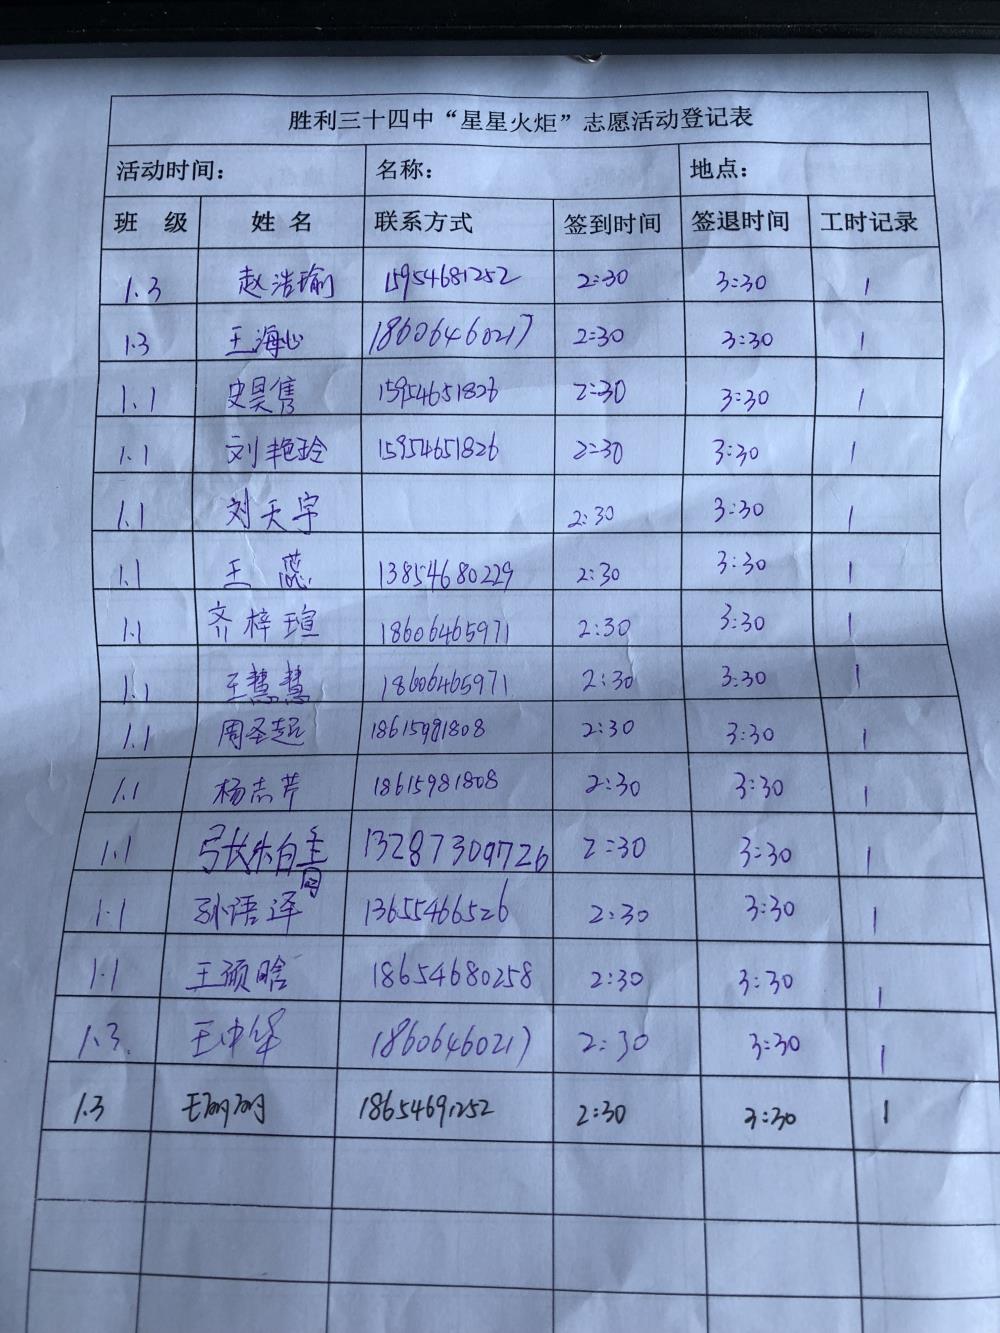 胜利三十四中“星星火炬”志愿活动登记表
活动时间： 名称： 地点：
班 级 姓 名 联系方式 签到时间 签退时间 工时记录
1.3 赵浩瑜 15954681252 2:30 3:30 1
1.3 王海心 18606460217 2:30 3:30 1
1.1 史昊隽 15954651826 2:30 3:30 1
1.1 刘艳玲 15954651826 2:30 3:30 1
1.1 刘天宇 2:30 3:30 1
1.1 王蕊 13854680229 2:30 3:30 1
1.1 齐梓瑄 18606465971 2:30 3:30 1
1.1 王慧慧 18606465971 2:30 3:30 1
1.1 周圣超 18615981808 2:30 3:30 1
1.1 杨志芹 18615981808 2:30 3:30 1
1.1 13287309726 2:30 3:30 1
1.1 孙语泽 13655466526 2:30 3:30 1
1.1 王硕晗 18654680258 2:30 3:30 1
1.3 王中华 18606460217 2:30 3:30 1
1.3 王丽丽 18654691252 2:30 3:30 1